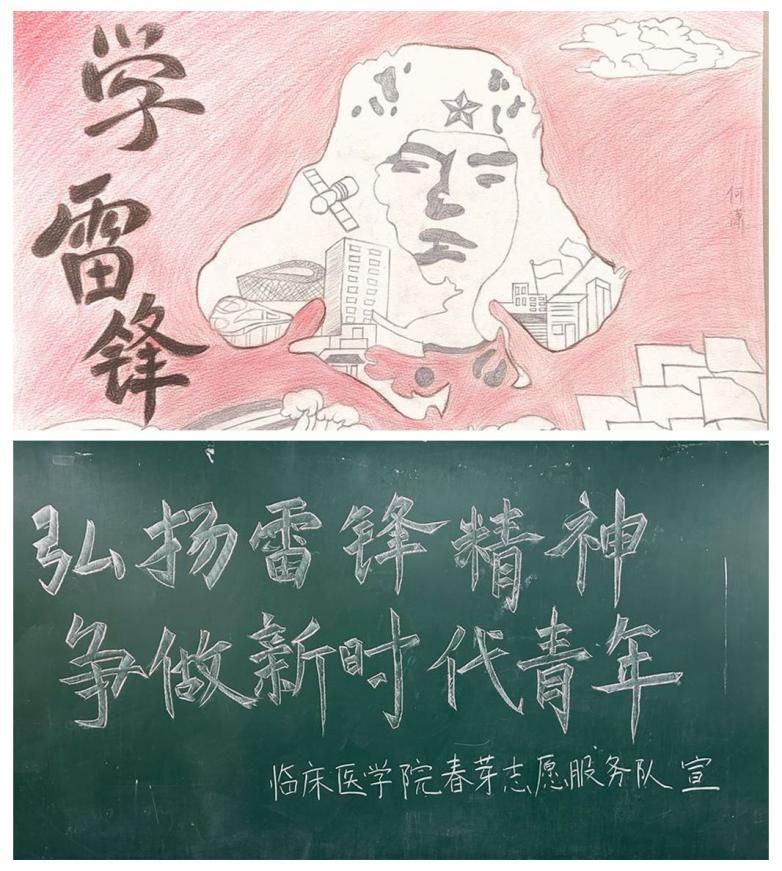 学
雷
锋
何
潇
弘扬雷锋精神
争做新时代青年
临床医学院春芽志愿服务队 宣